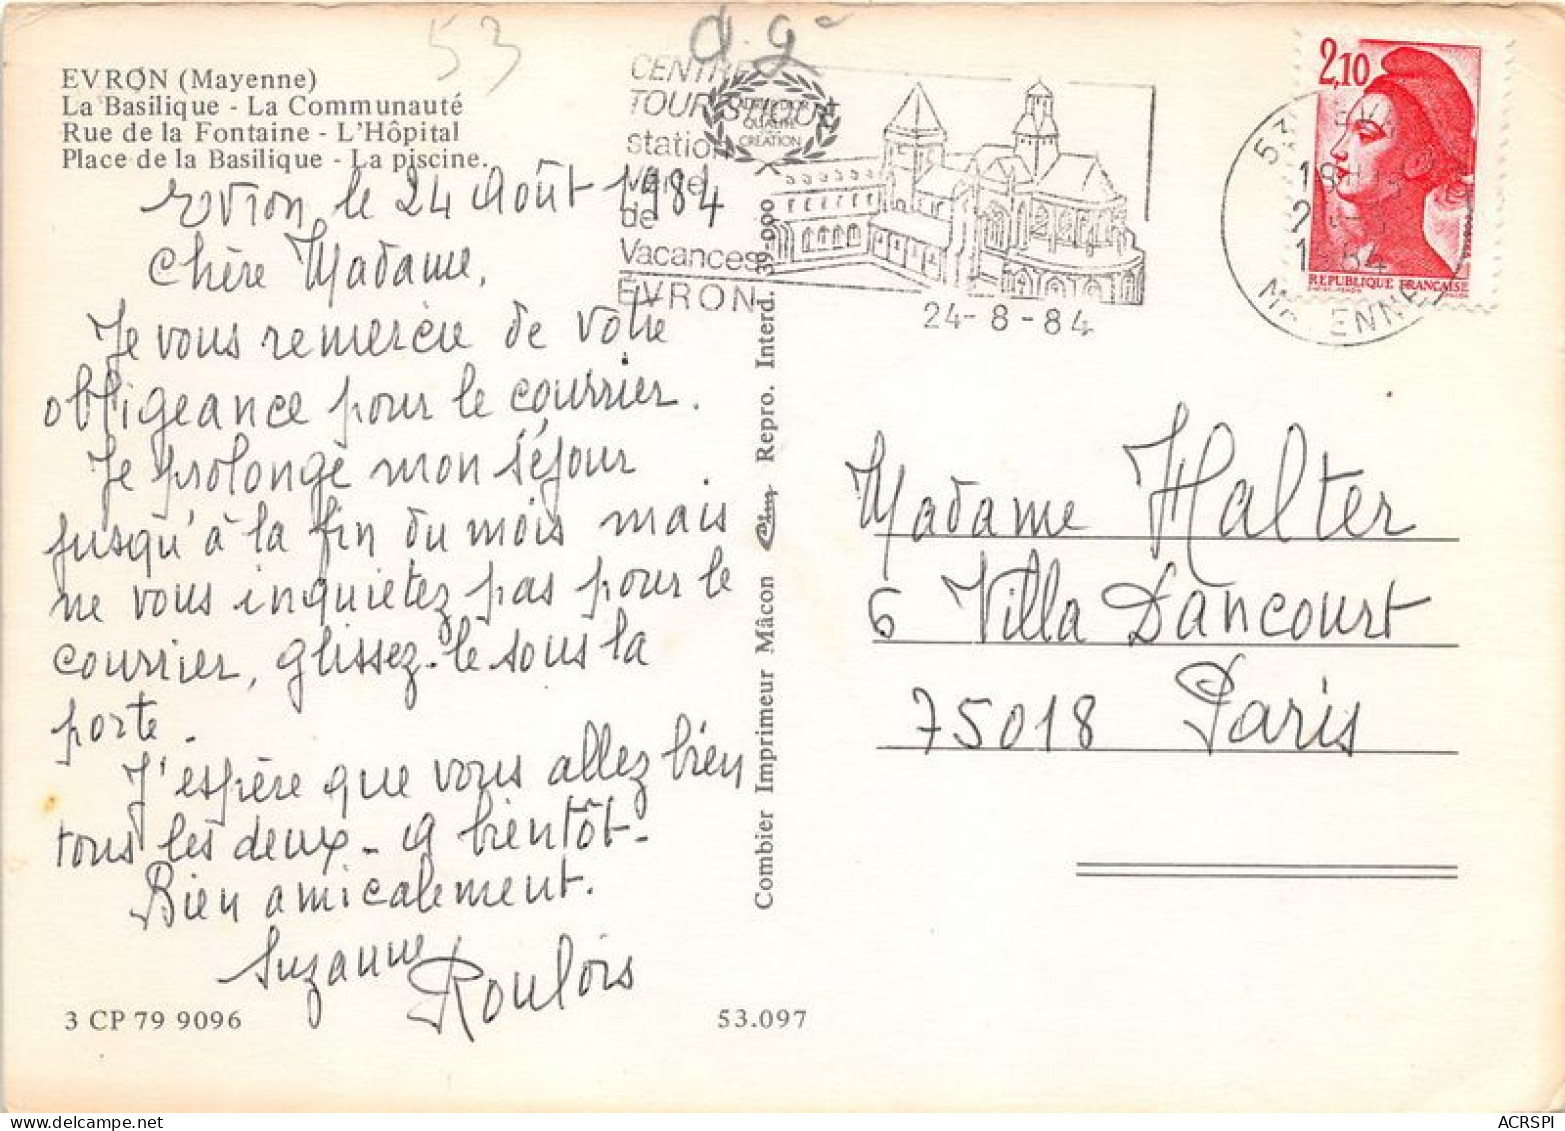 53
d. g-
EVRON (Mayenne)
La Basilique - La Communauté
Rue de la Fontaine - L'Hôpital
Place de la Basilique - La piscine.
CENTRE
TOURISTIQUE
station
verte
de
Vacances
ÉVRON
QUALITÉ
CRÉATION
24-8-84
2,10
REPUBLIQUE FRANÇAISE
53
18
1984
MAYENNE
Evron, le 24 Août 1984
Chère Madame,
Je vous remercie de votre
obligeance pour le courrier.
Je prolonge mon séjour
jusqu'à la fin du mois mais
ne vous inquietez pas pour le
courrier, glissez-le sous la
porte.
J'espère que vous allez bien
tous les deux - A bientôt -
Bien amicalement.
Suzanne Roulois
Combier Imprimeur Mâcon Cim Repro. Interd. 39-000
Madame Halter
6 Villa Dancourt
75018 Paris
3 CP 79 9096
53.097
ACRSPI